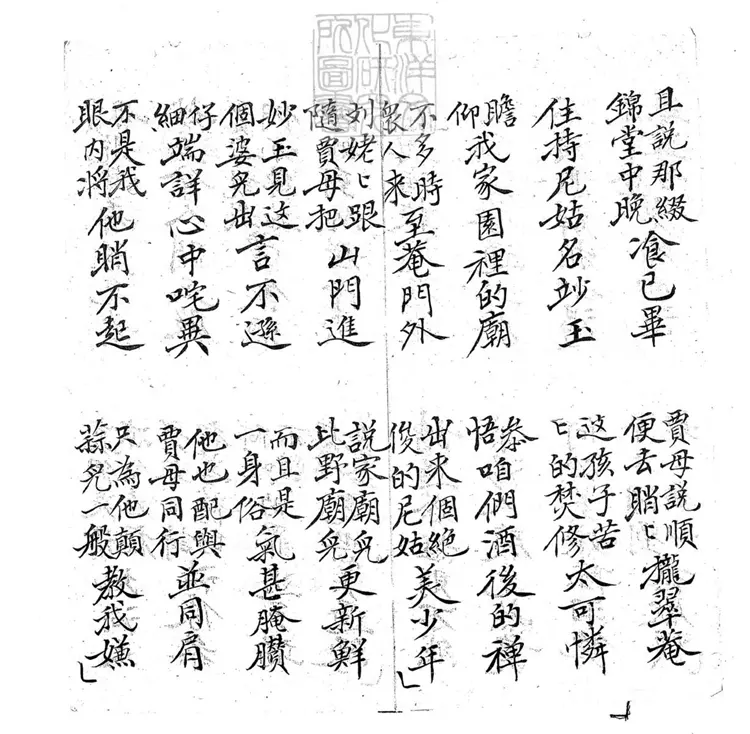 且說那綴錦堂中晚飡已畢
賈母說順便去睄ヒ攏翠菴
住持尼姑名妙玉
这孩子苦ヒ的焚修太可憐
瞻仰我家園裡的廟
叅悟咱們酒後的禅
不多時衆人来至菴門外
出来個絶俊的尼姑美少年
刘姥ヒ跟隨賈母把山門進
說家廟兒比野廟兒更新鮮
妙玉見这個婆兒出言不遜
而且是一身俗氣甚腌臢
仔細端詳心中咤異
他也配與賈母同行並同肩
不是我眼内将他睄不起
只為他顛蒜兒一般教我嫌